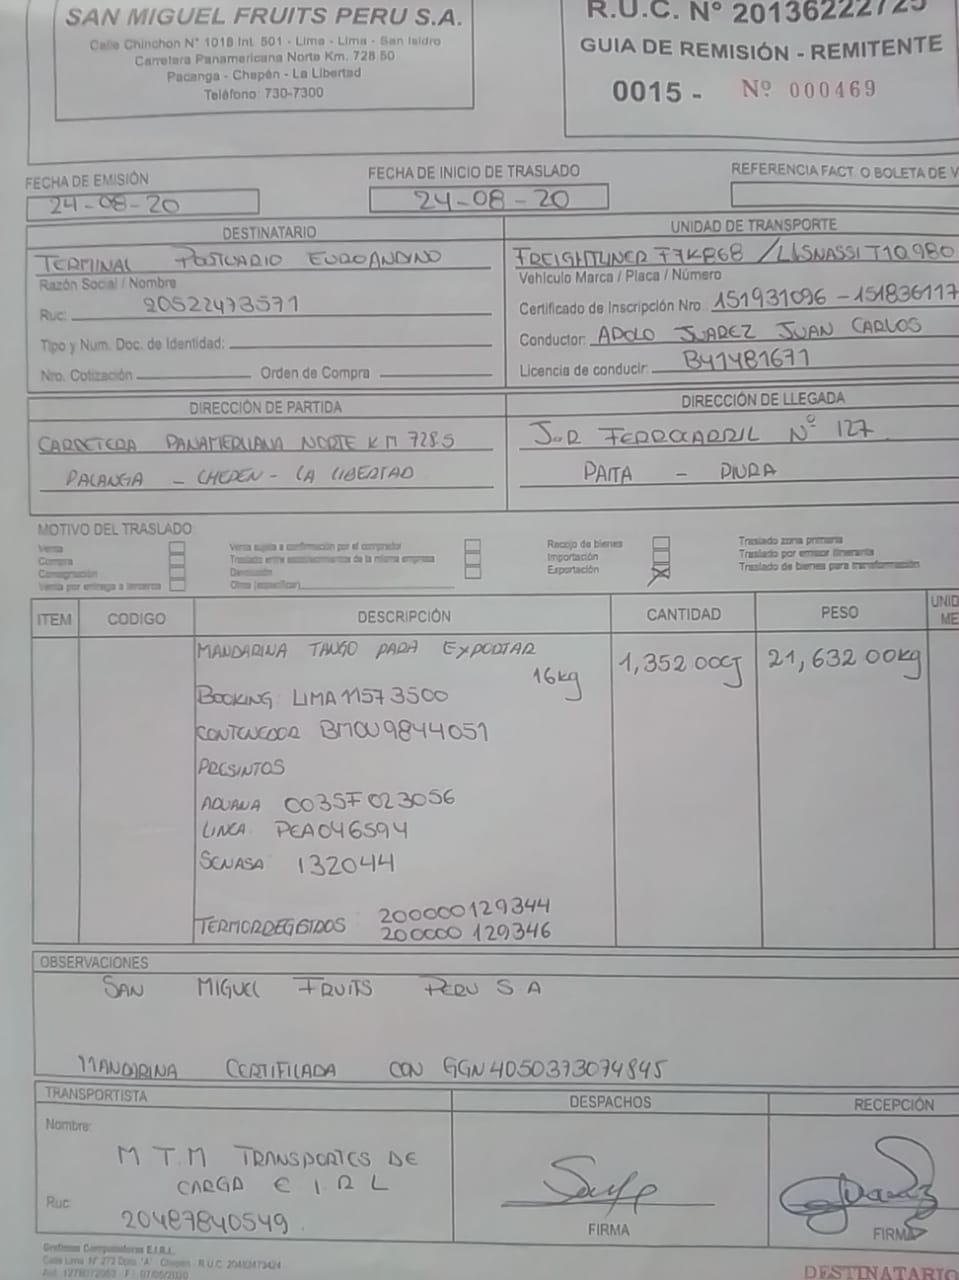 SAN MIGUEL FRUITS PERU S.A.
Calle Chinchon N° 1018 Int. 501 - Lima - Lima - San Isidro
Carretera Panamericana Norte Km. 728.50
Pacanga - Chepén - La Libertad
Teléfono: 730-7300
R.U.C. N° 20136222725
GUIA DE REMISIÓN - REMITENTE
0015 - Nº 000469
FECHA DE EMISIÓN
24-08-20
FECHA DE INICIO DE TRASLADO
24-08-20
REFERENCIA FACT. O BOLETA DE V
DESTINATARIO
TERMINAL PORTUARIO EUROANDINO
Razón Social / Nombre
Ruc: 20522473571
Tipo y Num. Doc. de Identidad:
Nro. Cotización Orden de Compra
UNIDAD DE TRANSPORTE
FREIGHTLINER F7K868 / T10980
Vehículo Marca / Placa / Número
Certificado de Inscripción Nro. 151931096 - 151836117
Conductor: ADOLO JUAREZ JUAN CARLOS
Licencia de conducir: B41481671
DIRECCIÓN DE PARTIDA
CARRETERA PANAMERICANA NORTE KM 728.5
PACANGA - CHEPEN - LA LIBERTAD
DIRECCIÓN DE LLEGADA
JR FERROCARRIL Nº 127
PAITA - PIURA
MOTIVO DEL TRASLADO
Venta
Compra
Consignación
Venta por entrega a terceros
Venta sujeta a confirmación por el comprador
Traslado entre establecimientos de la misma empresa
Devolución
Otros (especificar)
Recojo de bienes
Importación
Exportación
Traslado zona primaria
Traslado por emisor itinerante
Traslado de bienes para transformación
ITEM CODIGO DESCRIPCIÓN CANTIDAD PESO UNID
ME
MANDARINA TANGO PARA EXPORTAR 1,352 00CJ 21,632 00kg
16kg
BOOKING: LIMA11573500
CONTENEDOR BMOU9844051
PRESINTOS
ADUANA 0035F023056
LINEA: PEA046594
SENASA: 132044
TERMORREGISTROS 200000129344
200000 129346
OBSERVACIONES
SAN MIGUEL FRUITS PERU S A
MANDARINA CERTIFICADA CON GGN 4050373074845
TRANSPORTISTA
Nombre:
M T.M TRANSPORTES DE
CARGA E I.R L
Ruc:
20487840549
DESPACHOS
FIRMA
RECEPCIÓN
FIRMA
Graficas Computadoras E.I.R.L.
Calle Lima N° 273 Dpto. "A" Chepén R.U.C. 20483473424
DESTINATARIO